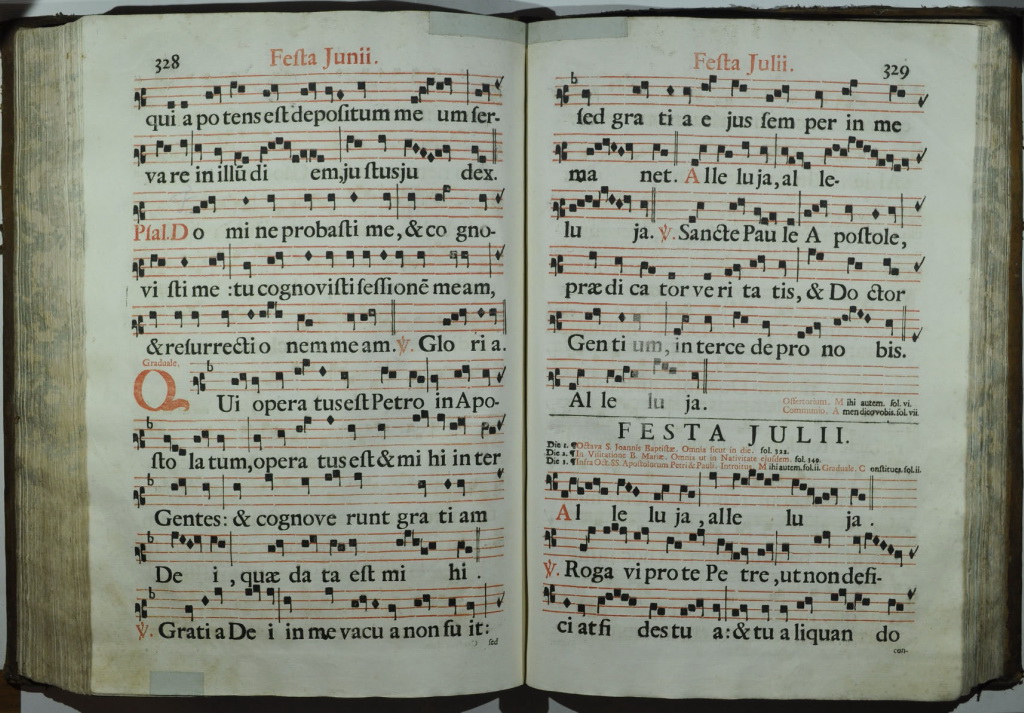 328
Festa Junii.
qui a po tens est depositum me um ser-
va re in illũ di em, ju stus ju dex.
Psal. Do mi ne probasti me, & co gno-
vi sti me : tu cognovisti sessionẽ meam,
& resurrecti o nem me am. ℣. Glo ri a.
Graduale.
QUi opera tus est Petro in Apo-
sto la tum, opera tus est & mi hi in ter
Gentes: & cognove runt gra ti am
De i, quæ da ta est mi hi.
℣. Grati a De i in me vacu a non fu it:
sed
Festa Julii.
329
sed gra ti a e jus sem per in me
ma net. Alle lu ja, al le-
lu ja. ℣. Sancte Pau le A postole,
præ di ca tor ve ri ta tis, & Do ctor
Gen ti um, in terce de pro no bis.
Al le lu ja.
Offertorium. Mihi autem. fol. vi.
Communio. Amen dico vobis. fol. vii.
FESTA JULII.
Die 1. ¶ Octava S. Joannis Baptistæ. Omnia sicut in die. fol. 322.
Die 2. ¶ In Visitatione B. Mariæ. Omnia ut in Nativitate ejusdem. fol. 349.
Die 3. ¶ Infra Oct. SS. Apostolorum Petri & Pauli. Introitus. Mihi autem. fol. ii. Graduale. Constitues. fol. ii.
Al le lu ja, alle lu ja.
℣. Roga vi pro te Pe tre, ut non defi-
ci at fi des tu a: & tu a liquan do
con-